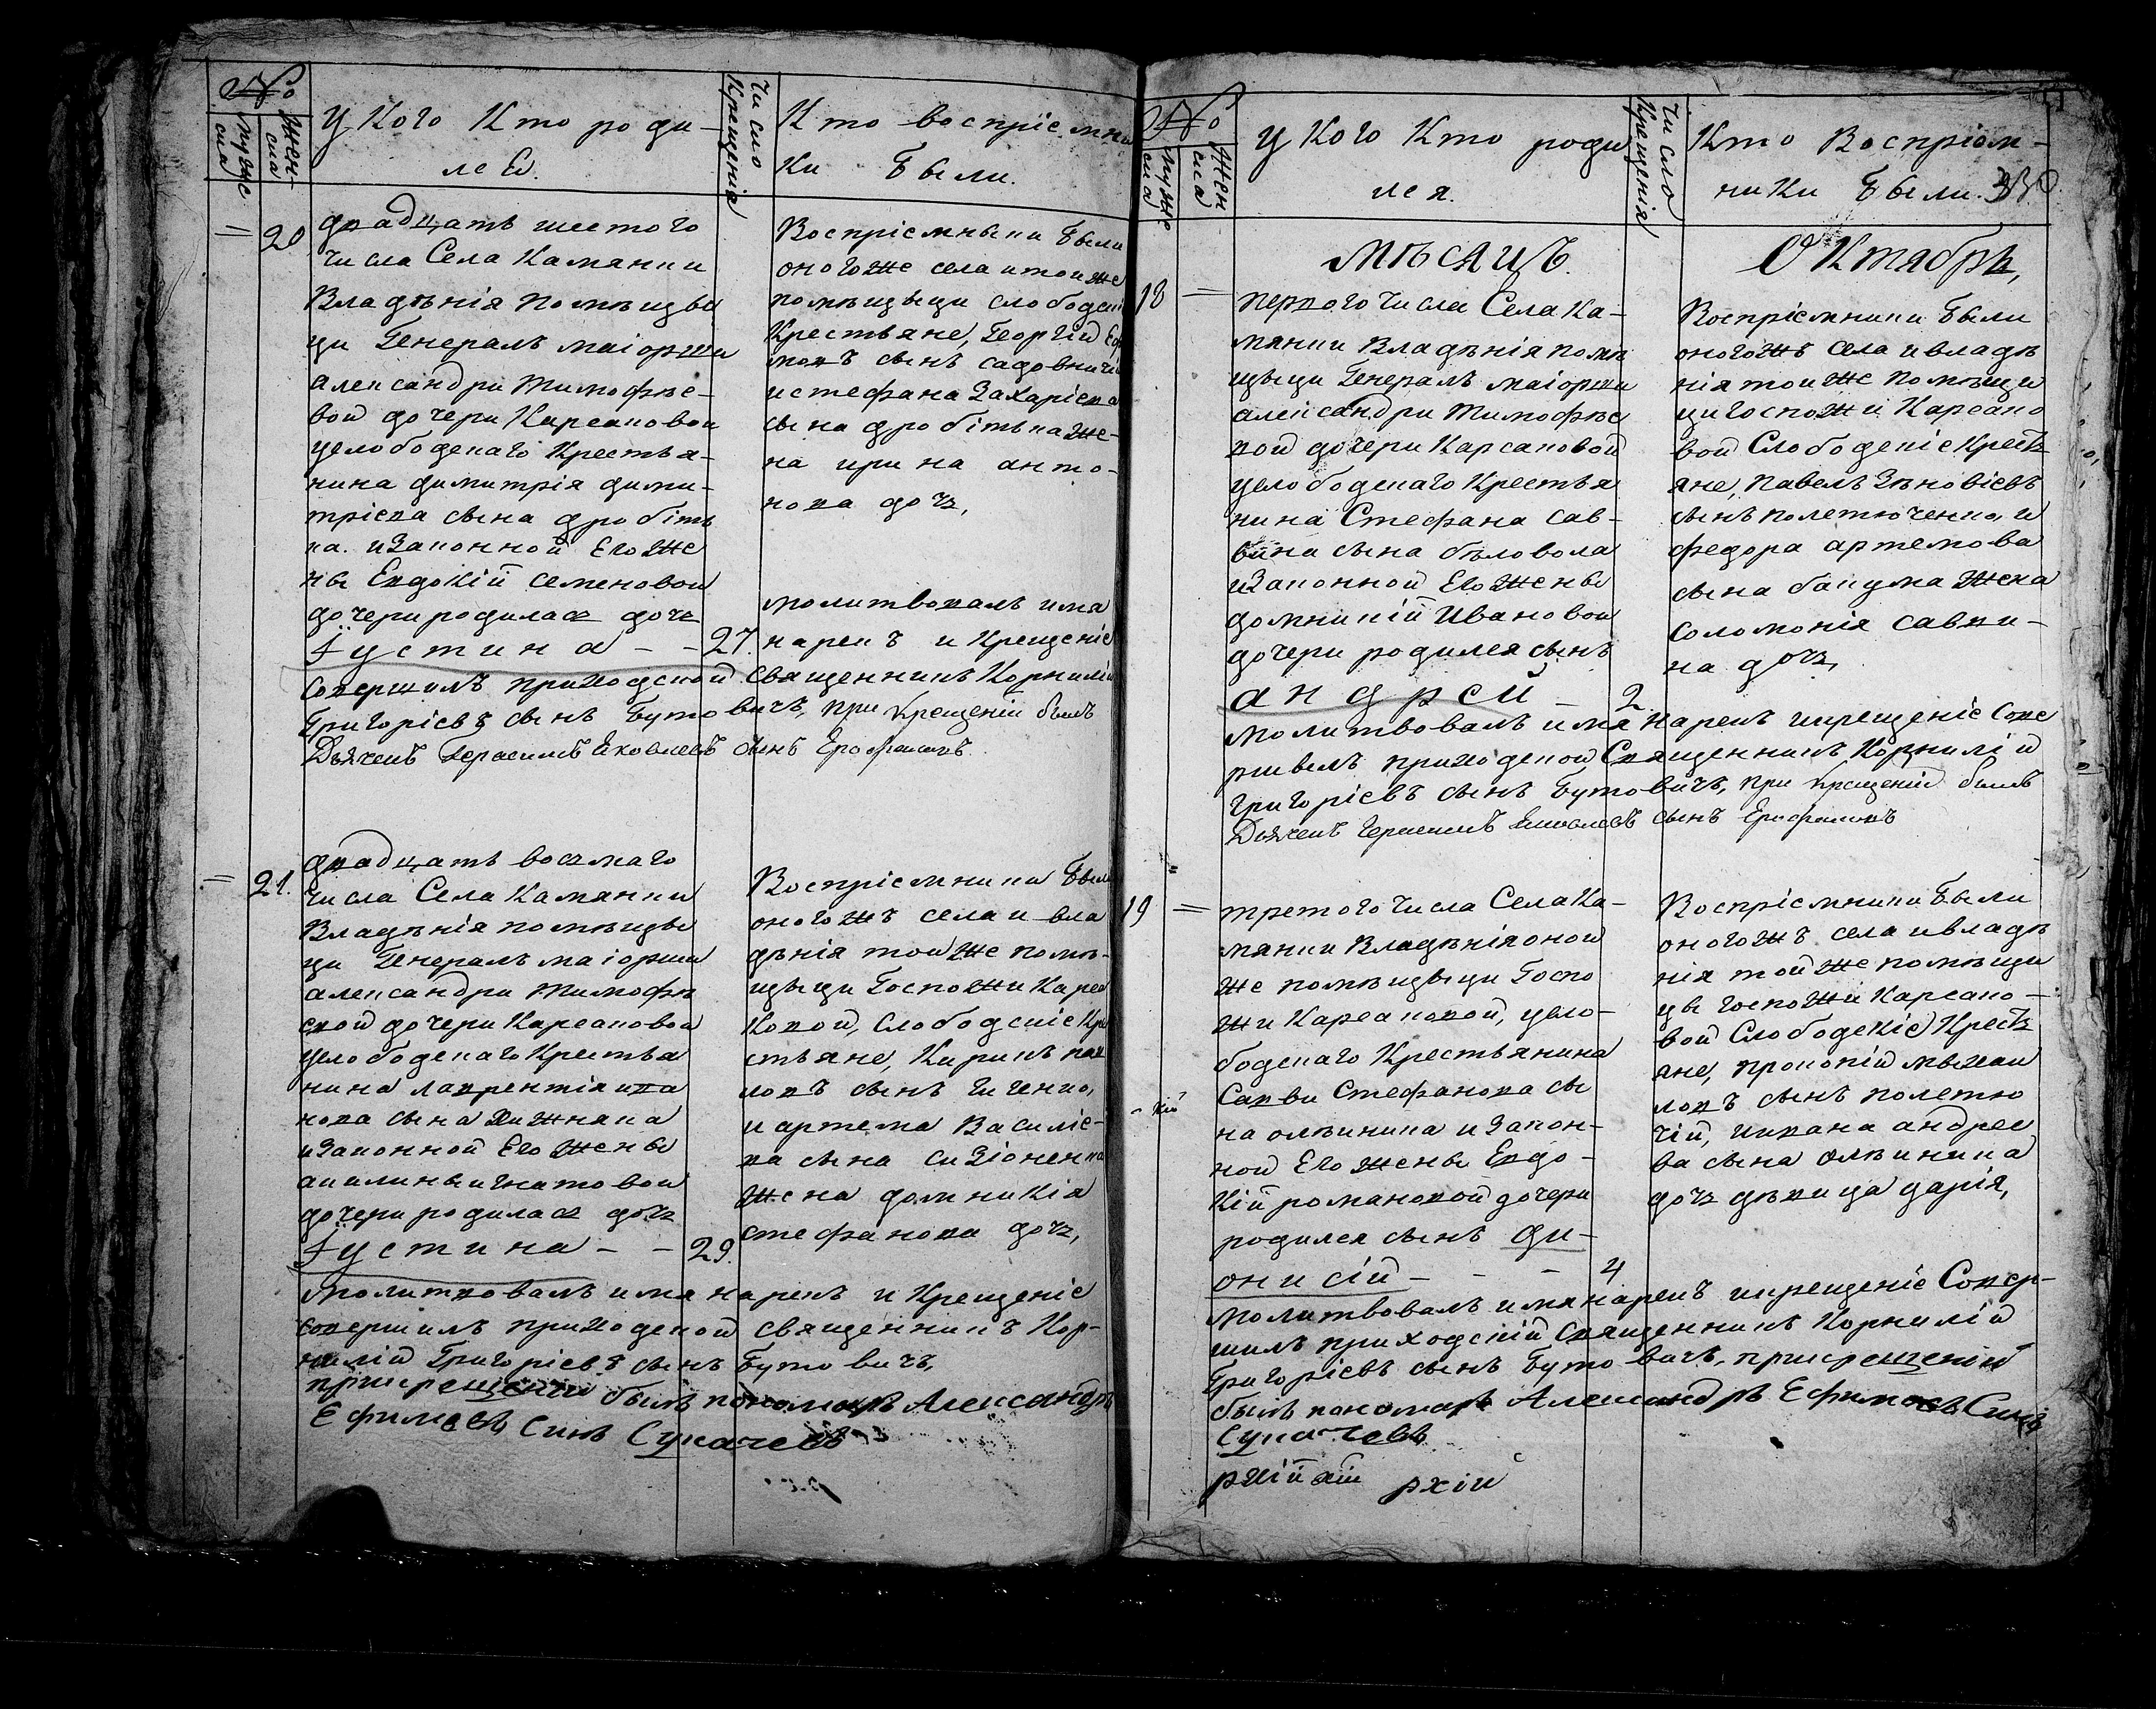 №
мужеска
женска
У Кого Кто роди-
лся.
Число Крещенія
Кто воспріемни
ки были.
20
двадцать шестого
числа Села Камянки
Владѣнія помѣщы
ци Генералъ маіорши
александри Тимофѣе-
вой дочери Карсановой
услободскаго Крестья-
нина димитрія дими-
тріева сына дробіть
ка. изаконной Его Же
ны Евдокій семеновой
дочери родилась дочь
Іустина - - 27.
Воспріемники были
оногоже села итоиже
помѣщыци слободскі
Крестьяне, Георгій
мовъ сынъ садовничі
истефана Захаріева
сына дробітька же-
на ирина анто-
нова дочь,
молитвовалъ имя
нарекъ и Крещеніе
совершилъ приходской священникъ Корнилій
Григоріевъ сынъ Бутовичъ, при крещеніи былъ
Дьячекъ Герасимъ Яковлевъ сынъ Ерофаловъ
21.
двадцать восмаго
числа Села Камянки
Владѣнія помѣщы
ци Генералъ маіорши
александри Тимофѣ
евой дочери Карсановой
услободскаго Крестья
нина лаврентія ива
нова сына Хижняка
изаконной Его Жены
акилины игнатовой
дочери родилась дочь
Іустина - - 29.
Воспріемники были
оногожъ села и вла
дѣнія тойже помѣ-
щыци Госпожи Карса
новой, Слободскіе Кре
стьяне, Кирикъ пав
ловъ сынъ Гиченко,
и артема Василіе-
ва сына Сизіоненка
Жена домникія
стефанова дочь,
молитвовалъ имя нарекъ и Крещеніе
совершилъ приходской священникъ Кор-
нилій Григоріевъ сынъ Бутовичъ,
прикрещеніи былъ пономаръ Александръ
Ефимовъ Синъ Сукачевъ
№
мужеска
женска
У Кого Кто роди
лся.
Число Крещенія
Кто Воспріем-
ники были.
мѣсяцъ.
Октябрь,
18
первого числа Села Ка-
мянки Владѣнія помѣ
щыци Генералъ маіорши
александри Тимофѣе
вой дочери Карсановой
услободскаго Крестья
нина Стефана сав-
вина сына бѣловола
изаконной Его Жены
домникій Ивановой
дочери родился сынъ
андрей - 2
Воспріемники были
оногожъ села ивладѣ
нія тоиже помѣщи
ци госпожи Карсано
вой Слободскіе Кресть
яне, павелъ Зѣновіевъ
сынъ полетюченко, и
федора артемова
сына бакума жена
соломонія савви-
на дочь,
молитвовалъ имя нарекъ икрещеніе Сове
ршилъ приходской Священникъ Корнилій
григоріевъ сынъ Бутовичъ, при крещеніи былъ
Дьячекъ Герасимъ Яковлевъ сынъ Ерофаловъ
19
третого числа Села Ка-
мянки Владѣнія оной
же помѣщыци Госпо
жи Карсановой, усло-
бодскаго Крестьянина
Саввы Стефанова сы
на олѣиника и закон-
ной Его жены Евдо-
кій романовой дочери
родился сынъ ди-
онисій - - - 4
Воспріемники были
оногожъ села ивладѣ
нія тойже помѣщи
цы госпожи Карсано-
вой Слободскіе Кресть
яне, прокопій михаи
ловъ сынъ полетю
чій, ивана андрее
ва сына олѣиника
дочь дѣвица дарія,
молитвовалъ имя нарекъ икрещеніе Совер-
шилъ приходскій Священникъ Корнилій
Григоріевъ сынъ Бутовичъ, прикрещеніи
былъ пономаръ Александръ Ефимовъ Синъ
Сукачевъ